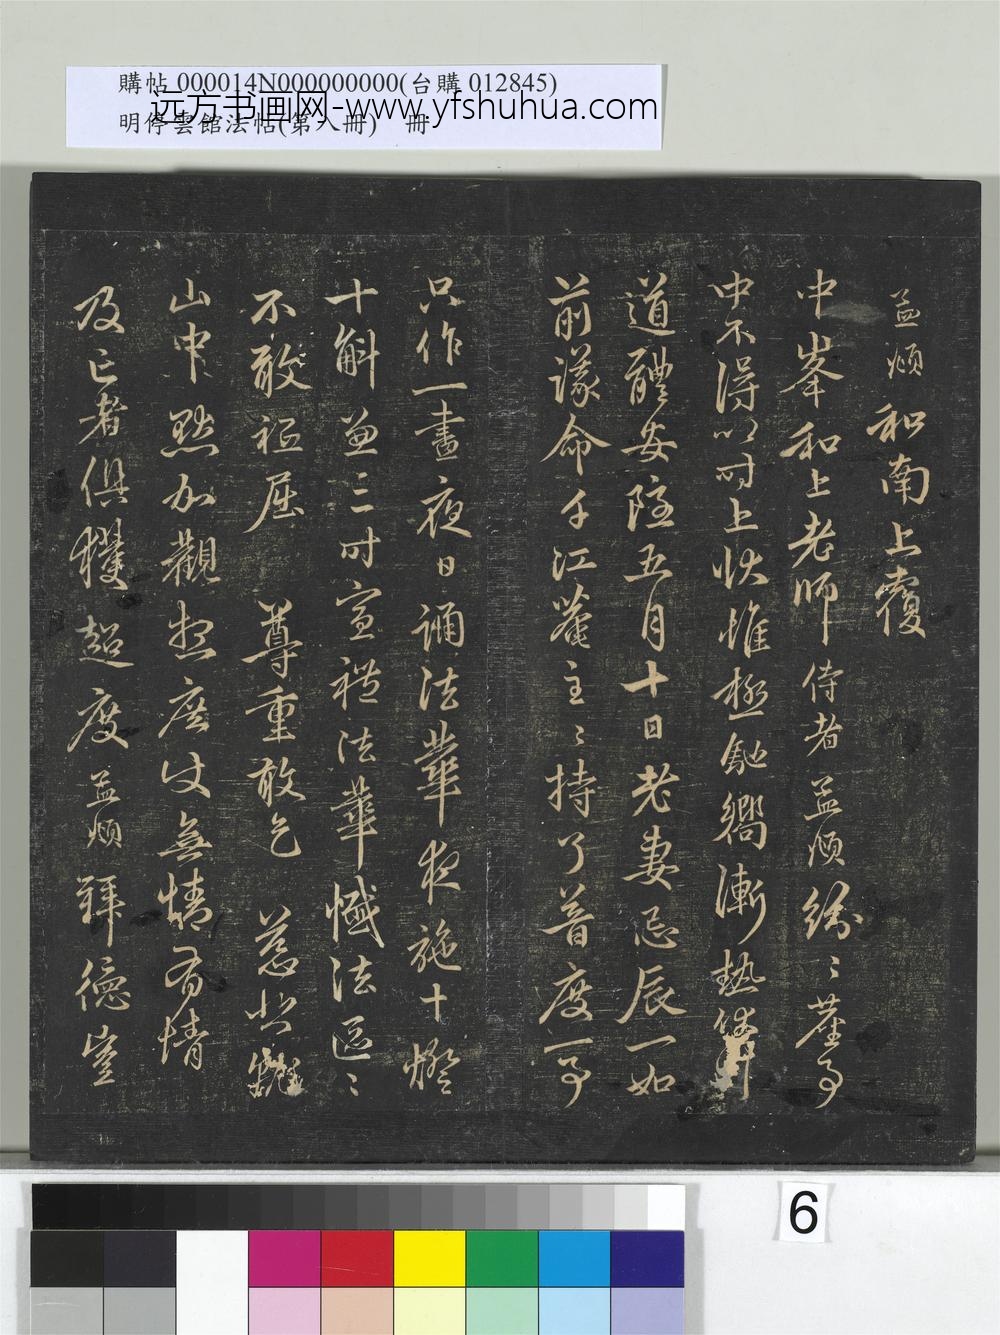 購帖 000014N000000000(台購 012845)
远方书画网-www.yfshuhua.com
明停雲館法帖(第八冊) 冊
孟頫和南上覆
中峯和上老師侍者孟頫紛〻塵事
中不得以時上狀惟極馳嚮漸熱
道體安隱五月十日老妻忌辰一如
前議命千江菴主〻持了普度一事
只作一晝夜日誦法華夜施十燈
十斛兼三時宣禮法華懺法區〻
不敢袛屈 尊重敢乞 慈悲就
山中默加觀想庶仗無情有情
及亡者俱獲超度孟頫拜德豈